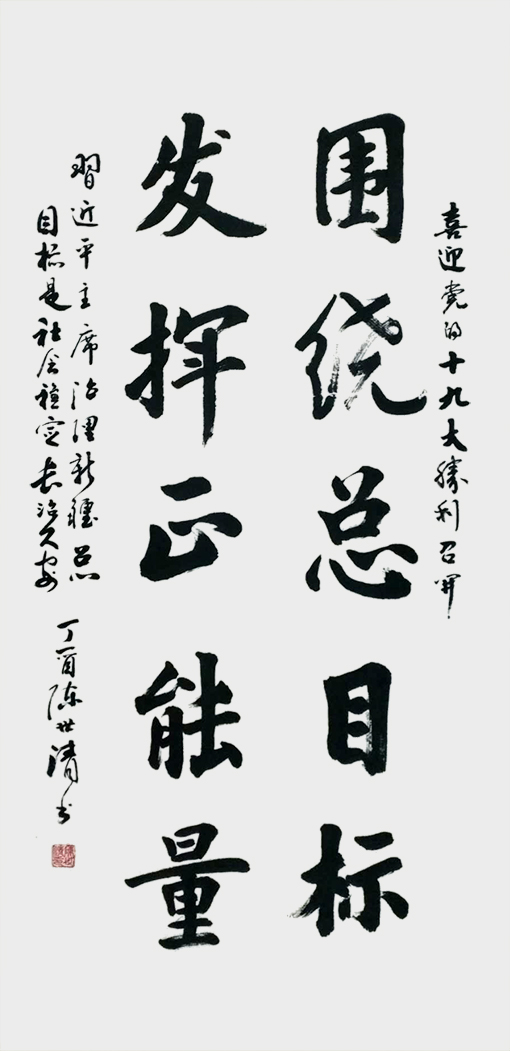 喜迎党的十九大勝利召开
围绕总目标
发挥正能量
習近平主席治理新疆总
目标是社会稳定长治久安
丁酉陈世清书